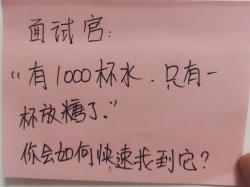 面试官：
“有1000杯水．只有一
杯放糖了。”
你会如何快速找到它？